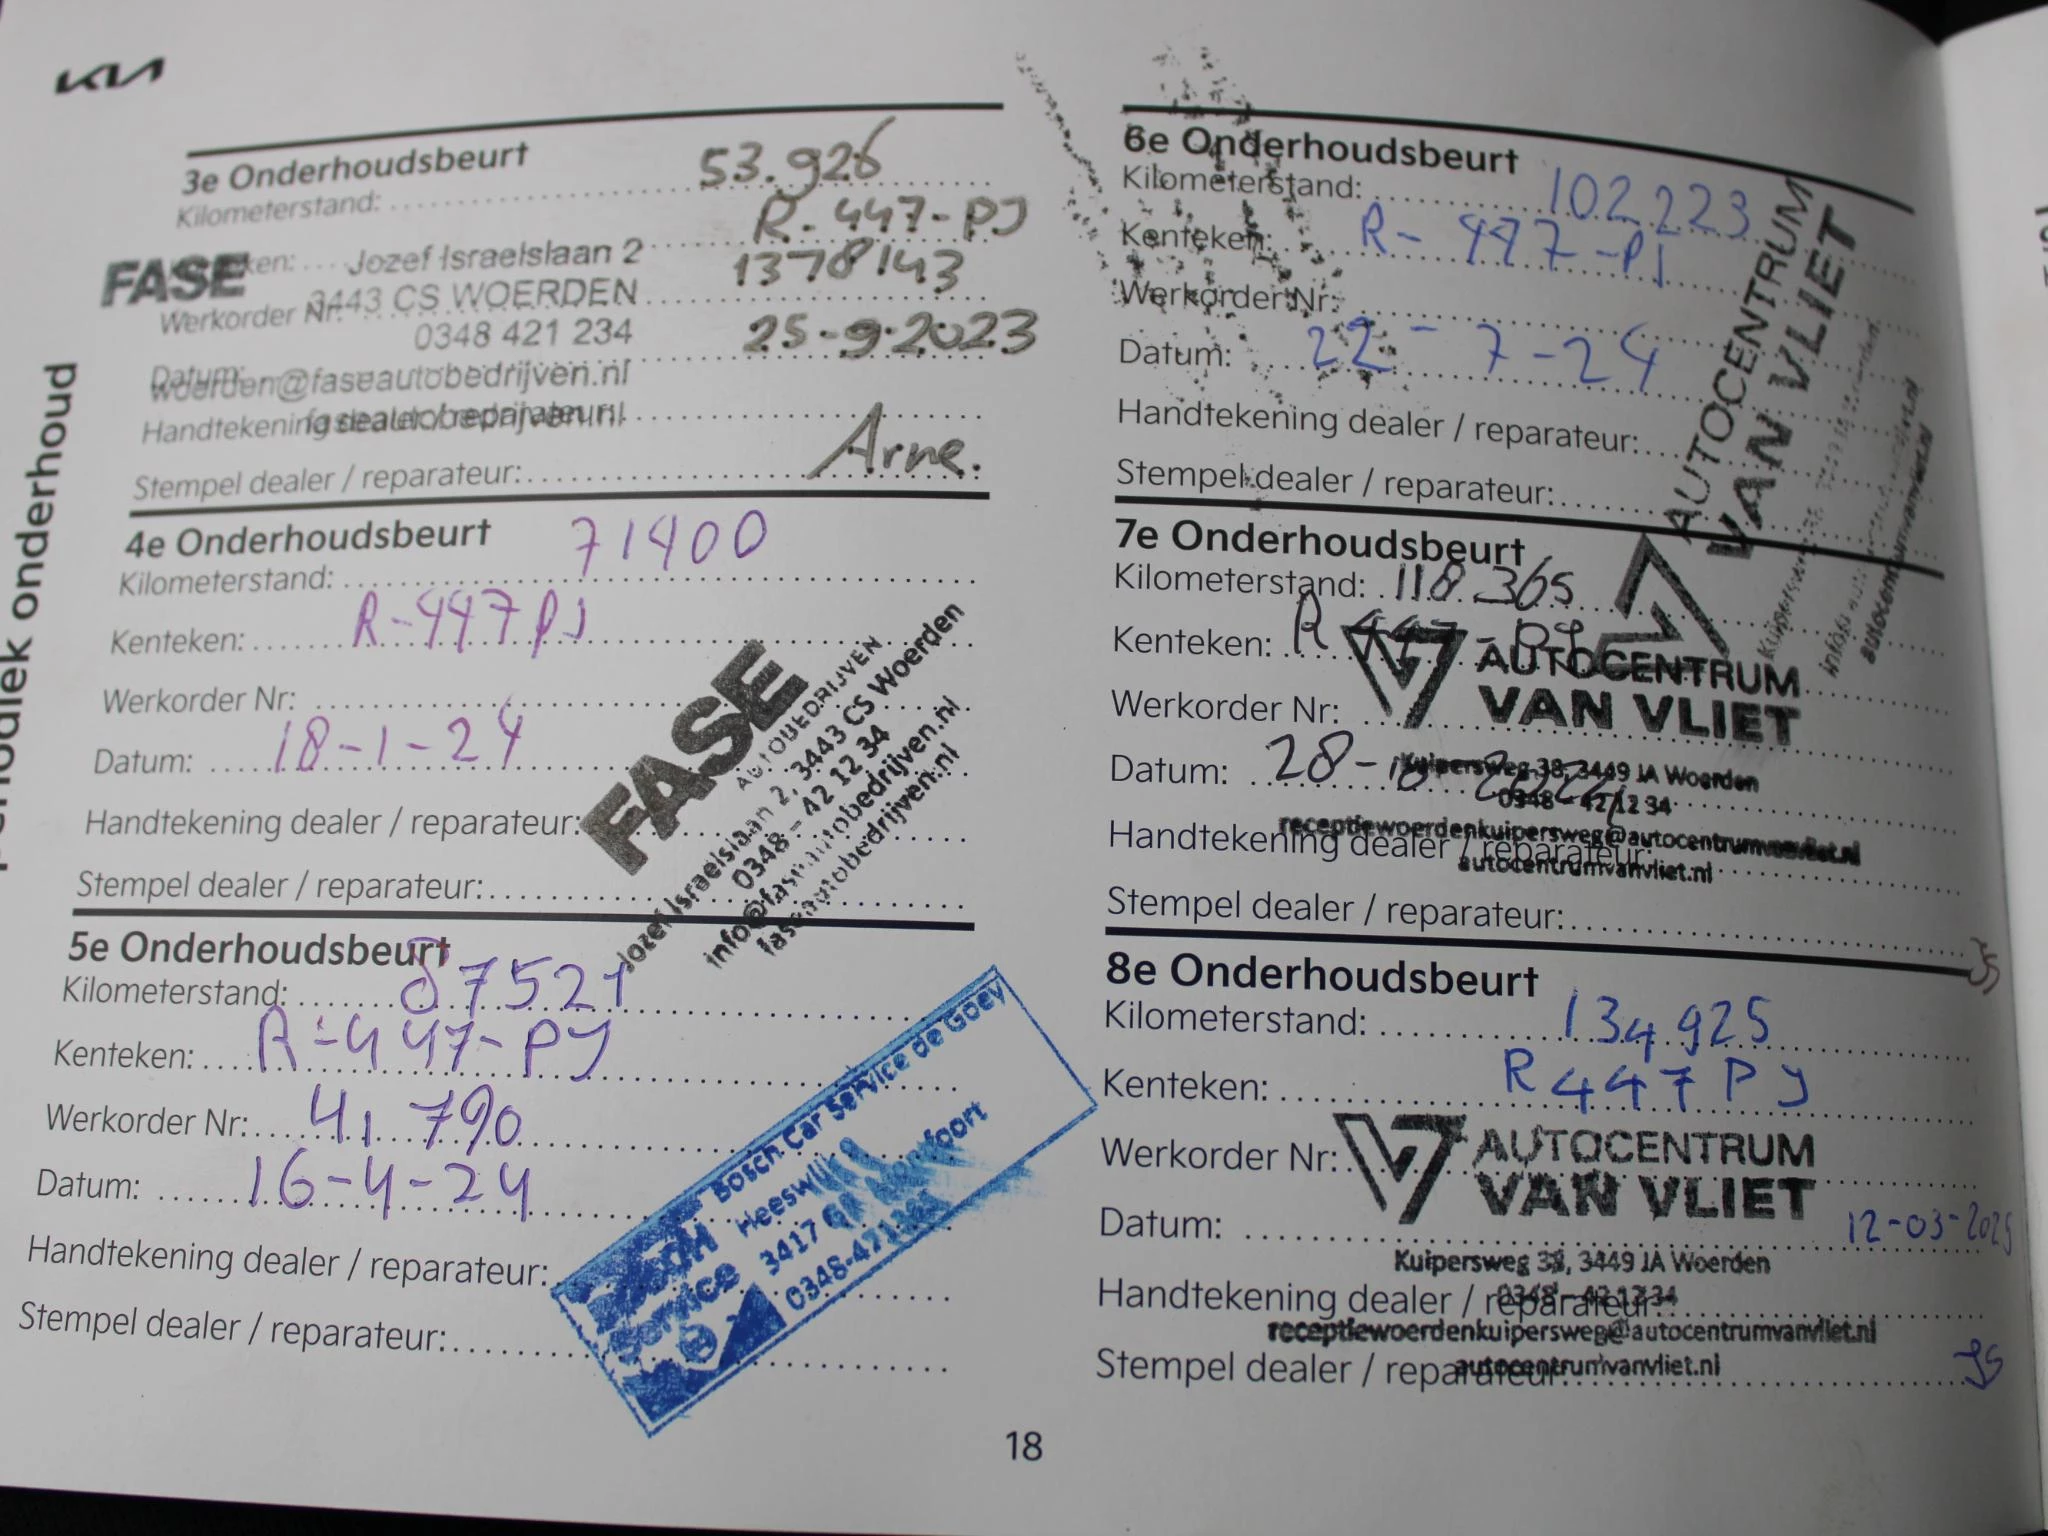 KIA
periodiek onderhoud
3e Onderhoudsbeurt
Kilometerstand: 53.926
R-447-PJ
FASE Jozef Israelslaan 2
3443 CS WOERDEN 1378143
Werkorder Nr:
0348 421 234
Datum: 25-9-2023
woerden@faseautobedrijven.nl
Handtekening dealer / reparateur:
Arne.
Stempel dealer / reparateur:
4e Onderhoudsbeurt
Kilometerstand: 71400
Kenteken: R-447PJ
Werkorder Nr:
Datum: 18-1-24
Handtekening dealer / reparateur:
Stempel dealer / reparateur:
FASE
AUTOBEDRIJVEN
Jozef Israelslaan 2, 3443 CS Woerden
0348 - 42 12 34
info@faseautobedrijven.nl
faseautobedrijven.nl
5e Onderhoudsbeurt
Kilometerstand: 87521
Kenteken: R-447-PJ
Werkorder Nr: 41,790
Datum: 16-4-24
Handtekening dealer / reparateur:
Stempel dealer / reparateur:
Bosch Car Service de Goey
3417
0348-471
Service
6e Onderhoudsbeurt
Kilometerstand: 102223
Kenteken: R-447-PJ
Werkorder Nr:
Datum: 22-7-24
Handtekening dealer / reparateur:
Stempel dealer / reparateur:
AUTOCENTRUM
VAN VLIET
7e Onderhoudsbeurt
Kilometerstand: 118.365
Kenteken: R 447-PJ
AUTOCENTRUM
Werkorder Nr: VAN VLIET
Datum: 28-10-2024
Kuipersweg 38, 3449 JA Woerden
0348 - 42 12 34
receptiewoerdenkuipersweg@autocentrumvanvliet.nl
Handtekening dealer / reparateur:
autocentrumvanvliet.nl
Stempel dealer / reparateur:
JS
8e Onderhoudsbeurt
Kilometerstand: 134925
Kenteken: R447PJ
Werkorder Nr: AUTOCENTRUM
VAN VLIET
Datum: 12-03-2025
Kuipersweg 38, 3449 JA Woerden
Handtekening dealer / reparateur:
0348 - 42 12 34
receptiewoerdenkuipersweg@autocentrumvanvliet.nl
Stempel dealer / reparateur: JS
autocentrumvanvliet.nl
18